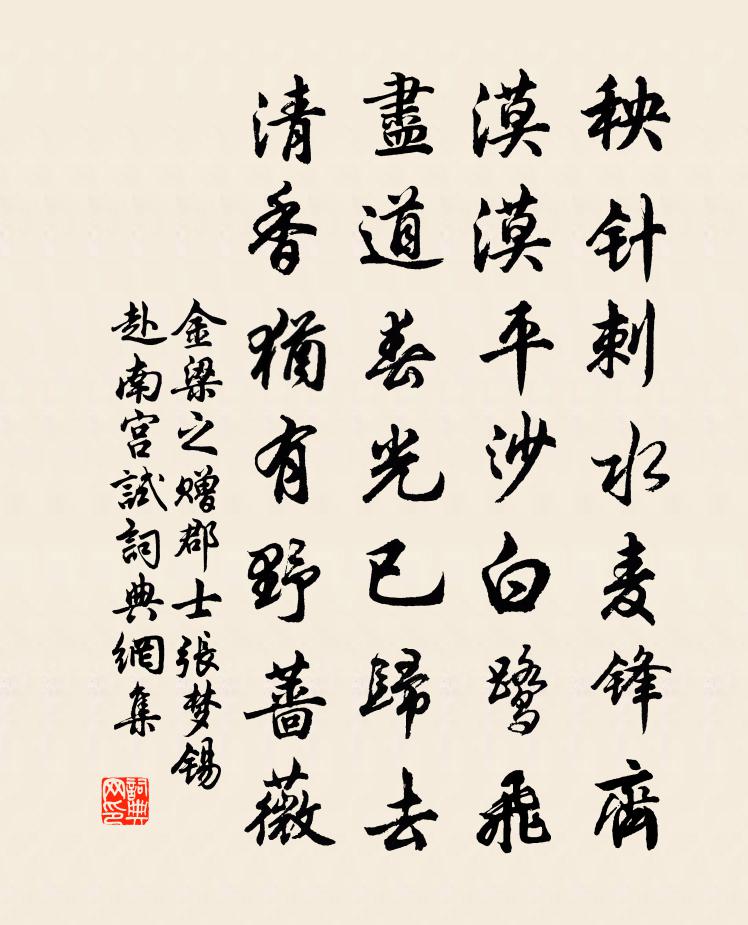 秧针刺水麦锋齊
漠漠平沙白鹭飛
盡道春光已歸去
清香猶有野薔薇
金梁之赠郡士張梦锡
赴南宫試詞典網集
詞典
网印